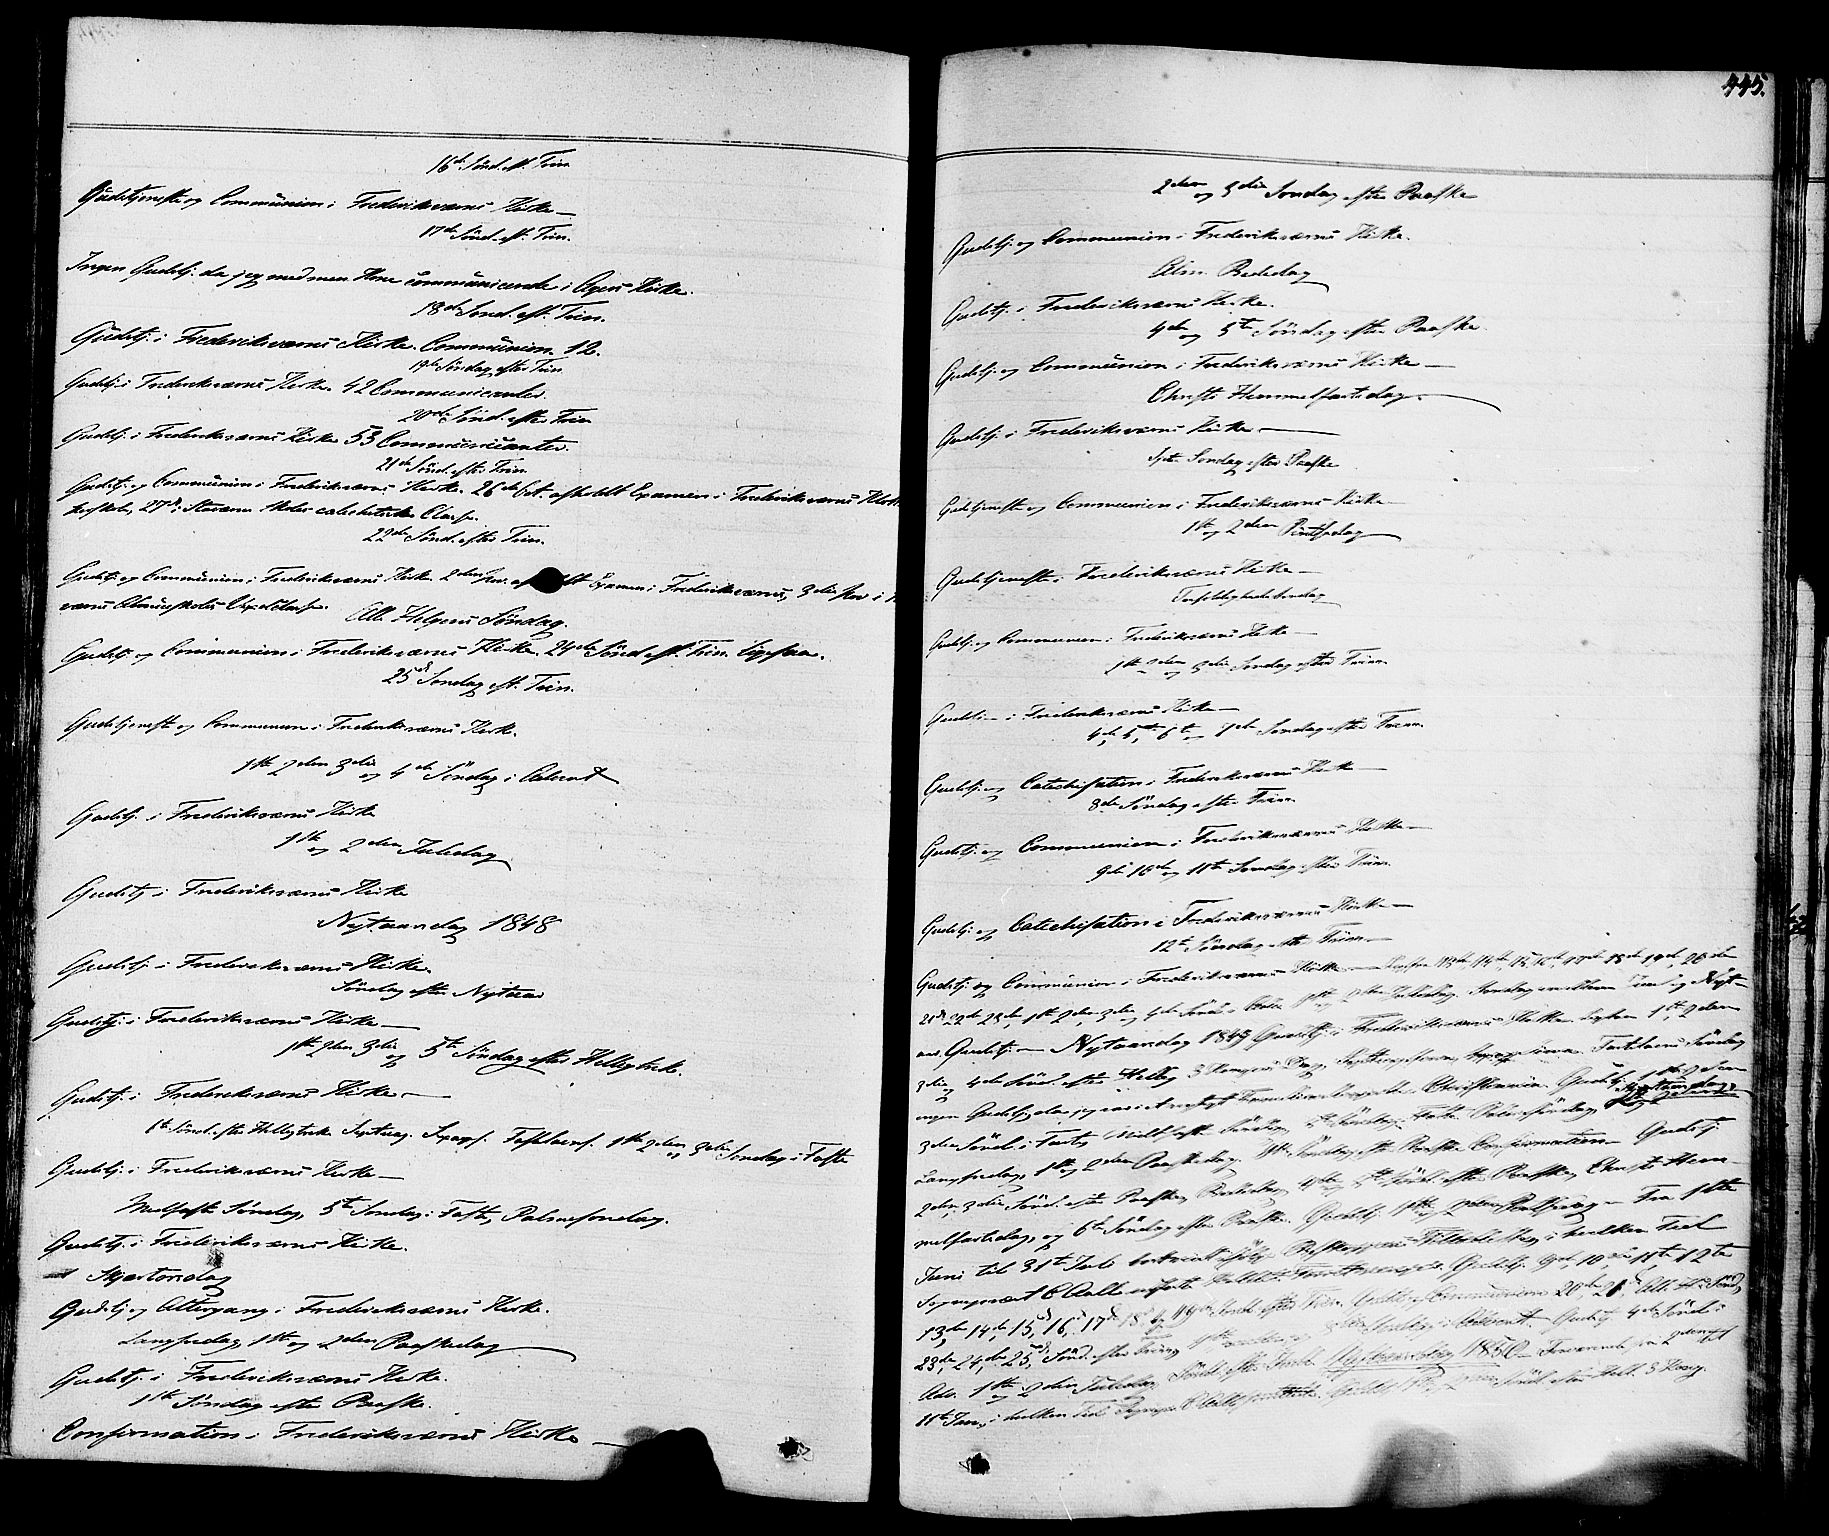 16de Sönd. eft. Trin
Gudstjeneste og Communion i Frederiksværns Kirke —
17de Sönd. eft. Trin.
Ingen Gudstj. da jeg med min Kone communicerede i Agers Kirke.
18de Sönd. eft. Trin.
Gudstj. i Frederiksværns Kirke. Communion. 12.
19de Söndag efter Trin
Gudstj. i Frederiksværns Kirke. 42 Communicanter.
20de Sönd. efter Trin
Gudstj. i Frederiksværns Kirke 53 Communicanter.
21de Sönd. efter Trin.
Gudstj. og Communion i Frederiksværns Kirke. 26de Oct. afholdt Examen i Frederiksværns
27de i Stavern Skoles Classe.
22de Sönd. efter Trin.
Gudstj. og Communion i Frederiksværns Kirke 2den Nov. Examen i Frederiksværns, 3die Nov i
værns Almueskoles
Alle Helgens Söndag.
Gudstj. og Communion i Frederiksværns Kirke. 24de Sönd. eft. Trin. ligesaa.
25de Söndag eft. Trin.
Gudstjenest og Communion i Frederiksværns Kirke.
1ste 2den 3die og 4de Söndag i Advent
Gudstj. i Frederiksværns Kirke
1ste og 2den Juledag
Gudstj. i Frederiksværns Kirke
Nytaarsdag 1848
Gudstj. i Frederiksværns Kirke.
Söndag efter Nytaar
Gudstj. i Frederiksværns Kirke —
1ste 2den 3die og 5te Söndag efter Helligtrek.
Gudstj. i Frederiksværns Kirke —
Sönd. efter Helligtrek. Septuag. Sexages. Fastelavns. 1ste 2den og 3die Söndag i Faste
Gudstj. i Frederiksværns Kirke —
Midfaste Söndag, 5te Söndag i Faste, Palmesöndag.
Gudstj. i Frederiksværns Kirke.
Skjærtorsdag
Gudstj. og Altergang i Frederiksværns Kirke.
Langfredag, 1ste og 2den Paaskedag
Gudstj. i Frederiksværns Kirke.
1ste Söndag efter Paaske.
Confirmation i Frederiksværns Kirke —
445.
2den og 3die Söndag efter Paaske
Gudstj. og Communion i Frederiksværns Kirke.
Alm. Bededag
Gudstj. i Frederiksværns Kirke.
4de og 5te Söndag efter Paaske.
Gudstj. og Communion i Frederiksværns Kirke —
Christi Himmelfartsdag.
Gudstj. i Frederiksværns Kirke —
Söndag efter Paaske
Gudstjeneste og Communion i Frederiksværns Kirke —
1ste og 2den Pintsedag
Gudstjeneste i Frederiksværns Kirke —
Trefoldighedssöndag
Gudstj. og Communion i Frederiksværns Kirke —
1ste 2den og 3die Söndag efter Trin.
Gudstj. i Frederiksværns Kirke —
4de, 5te, 6te og 7de Söndag efter Trin.
Gudstj. og Catechisation i Frederiksværns Kirke —
8de Söndag efter Trin.
Gudstj. og Communion i Frederiksværns Kirke —
9de 10de og 11te Söndag efter Trin.
Gudstj. og Catechisation i Frederiksværns Kirke —
12te Söndag efter Trin —
Gudstj. og Communion i Frederiksværns Kirke — Ligesaa 13de, 14de, 15, 16de, 17de 18de 19de, 20de
21de 22de 23de, 1ste 2den, 3die og 4de Sönd. i Advent 1ste og 2den Juledag. Söndag mellem Juul og Nyt-
aar. Gudstj. — Nytaarsdag 1849 Gudstj. i Frederiksværns Kirke ligesaa 1ste, 2den
3die og 4de Sönd. efter Hellig 3 Kongers Dag, Fastelavns Söndag
ingen Gudstj. da jeg var Christiania. Gudstj. 1ste 2den
3die Sönd. i Faste, Midfaste Söndag, 5te Söndag i Faste Palmesöndag,
Langfredag, 1ste og 2den Paaskedag. 1ste Söndag efter Paaske Confirmation — Gudstj.
2den, 3die Sönd. efter Paaske, Bededag, 4de og 5te Sönd. efter Paaske, Christi Him-
melfartsdag, og 6te Söndag efter Paaske. Gudstj. 1ste og 2den Pintsedag — Fra 1ste
Juni til 31te Juli i hvilken Tid
Sognepræst Gudstj. 9de, 10, 11te, 12te
13de 14de, 15de, 16, 17de 18de og 19de Sönd. efter Trin. Gudstj. og Communion 20de 21de Alle H. Sönd.
23de, 24de, 25de, Sönd. efter Trin, Söndag i Advent. Gudstj. 4de Sönd. i
Adv. 1ste og 2den Juledag, Sönd. efter Juul. Nytaarsdag 1850 — Fraværende fra 2den til
11te Jan., i hvilken Tid Sognepr. Sönd. efter Hell. 3 Kong.